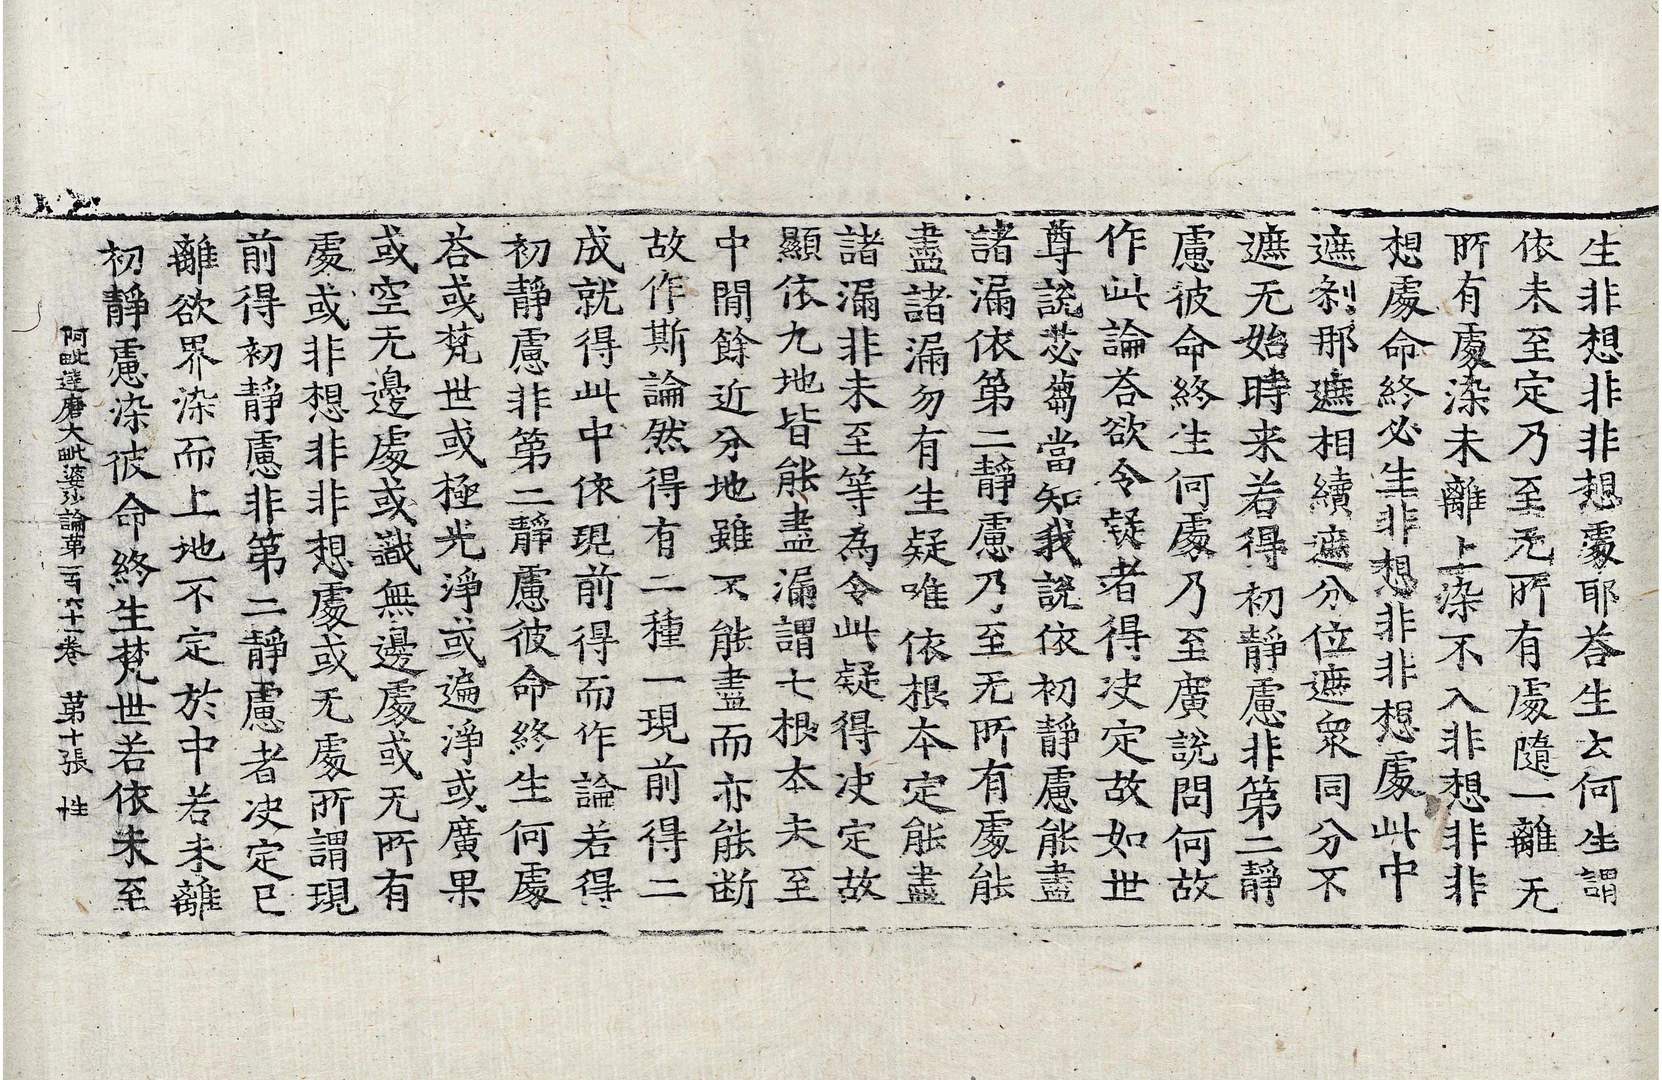 生非想非非想處耶荅生云何生謂
依未至定乃至无所有處隨一離无
所有處染未離上染不入非想非非
想處命終必生非想非非想處此中
遮刹那遮相續遮分位遮衆同分不
遮无始時来若得初靜慮非第二靜
慮彼命終生何處乃至廣說問何故
作此論荅欲令疑者得决定故如世
尊說苾蒭當知我說依初靜慮能盡
諸漏依第二靜慮乃至无所有處能
盡諸漏勿有生疑唯依根本定能盡
諸漏非未至等為令此疑得决定故
顯依九地皆能盡漏謂七根本未至
中間餘近分地雖不能盡而亦能断
故作斯論然得有二種一現前得二
成就得此中依現前得而作論若得
初靜慮非第二靜慮彼命終生何處
荅或梵世或極光淨或遍淨或廣果
或空无邊處或識無邊處或无所有
處或非想非非想處或无處所謂現
前得初靜慮非第二靜慮者决定已
離欲界染而上地不定於中若未離
初靜慮染彼命終生梵世若依未至
阿毗達磨大毗婆沙論第一百六十一卷 第十張 性